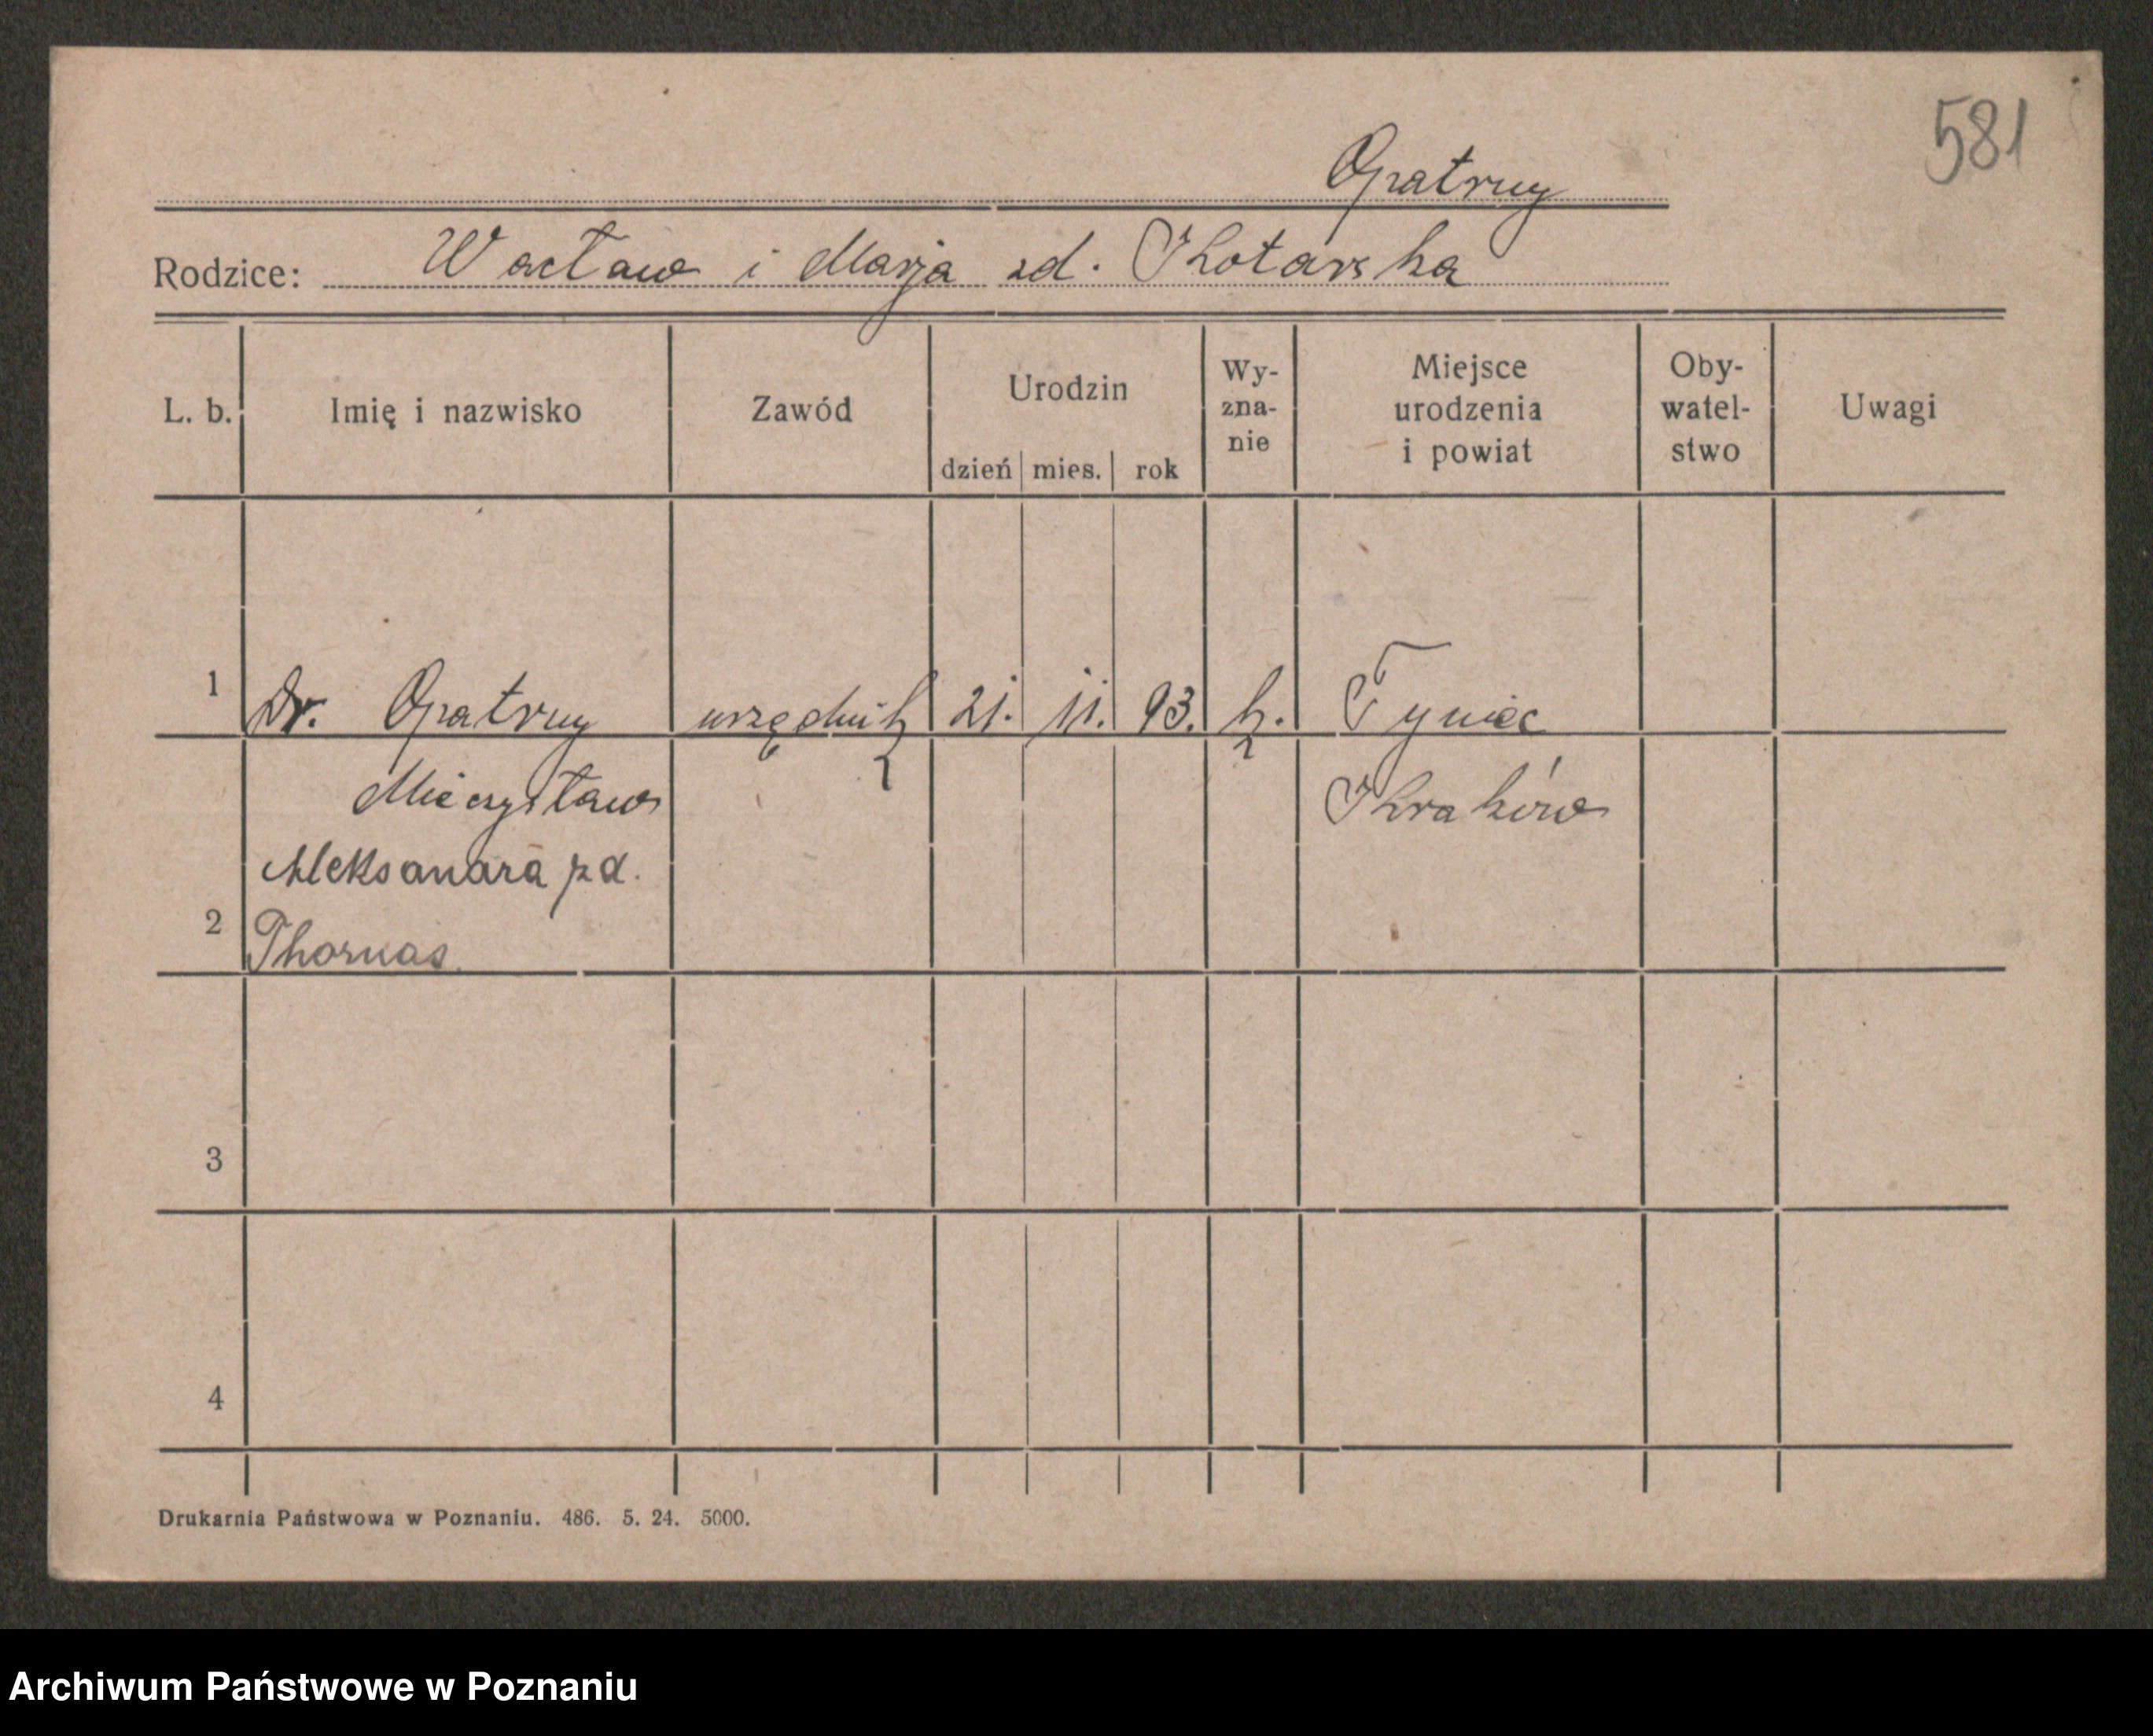 581
Opatrny
Rodzice: Wacław i Marja zd. Kotarska
L. b. Imię i nazwisko Zawód Urodzin dzień mies. rok Wy-zna-nie Miejsce urodzenia i powiat Oby-watel-stwo Uwagi
1 Dr. Opatrny urzędnik 21. 11. 93. k. Tyniec
Mieczysław Kraków
Aleksandra zd.
2 Thomas.
3
4
Drukarnia Państwowa w Poznaniu. 486. 5. 24. 5000.
Archiwum Państwowe w Poznaniu